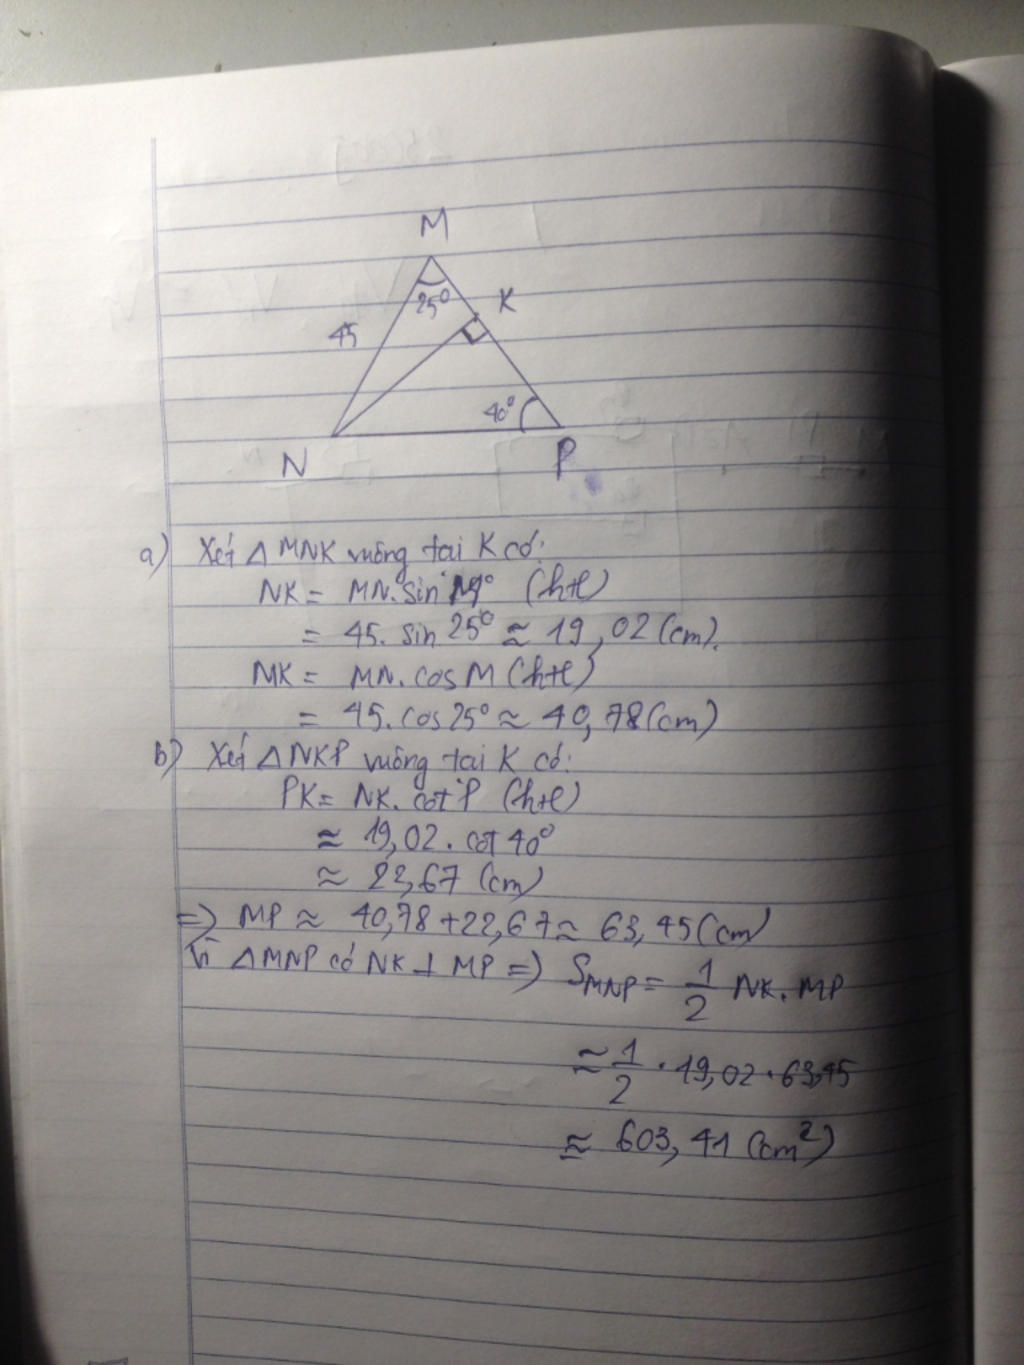 M
25⁰
K
45
40⁰
N
P
a) Xét △ MNK vuông tại K có:
NK = MN. sin M (htl)
= 45. sin 25⁰ ≈ 19,02 (cm).
MK = MN. cos M (htl)
= 45. cos 25⁰ ≈ 40,78 (cm)
b) Xét △ NKP vuông tại K có:
PK = NK. cot P (htl)
≈ 19,02 . cot 40⁰
≈ 22,67 (cm)
=> MP ≈ 40,78 + 22,67 ≈ 63,45 (cm)
Vì △ MNP có NK ⊥ MP => S_MNP = 1/2 NK. MP
≈ 1/2 . 19,02 . 63,45
≈ 603,41 (cm²)